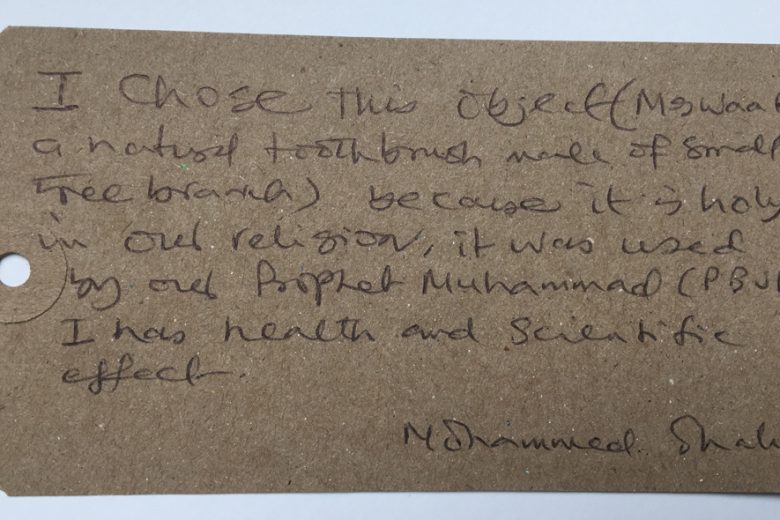 I chose this object (Meswaak
a natural toothbrush made of small
tree branch) because it is holy
in our religion, it was used
by our Prophet Muhammad (PBUH
I has health and scientific
effect.
Mohammed. Shah